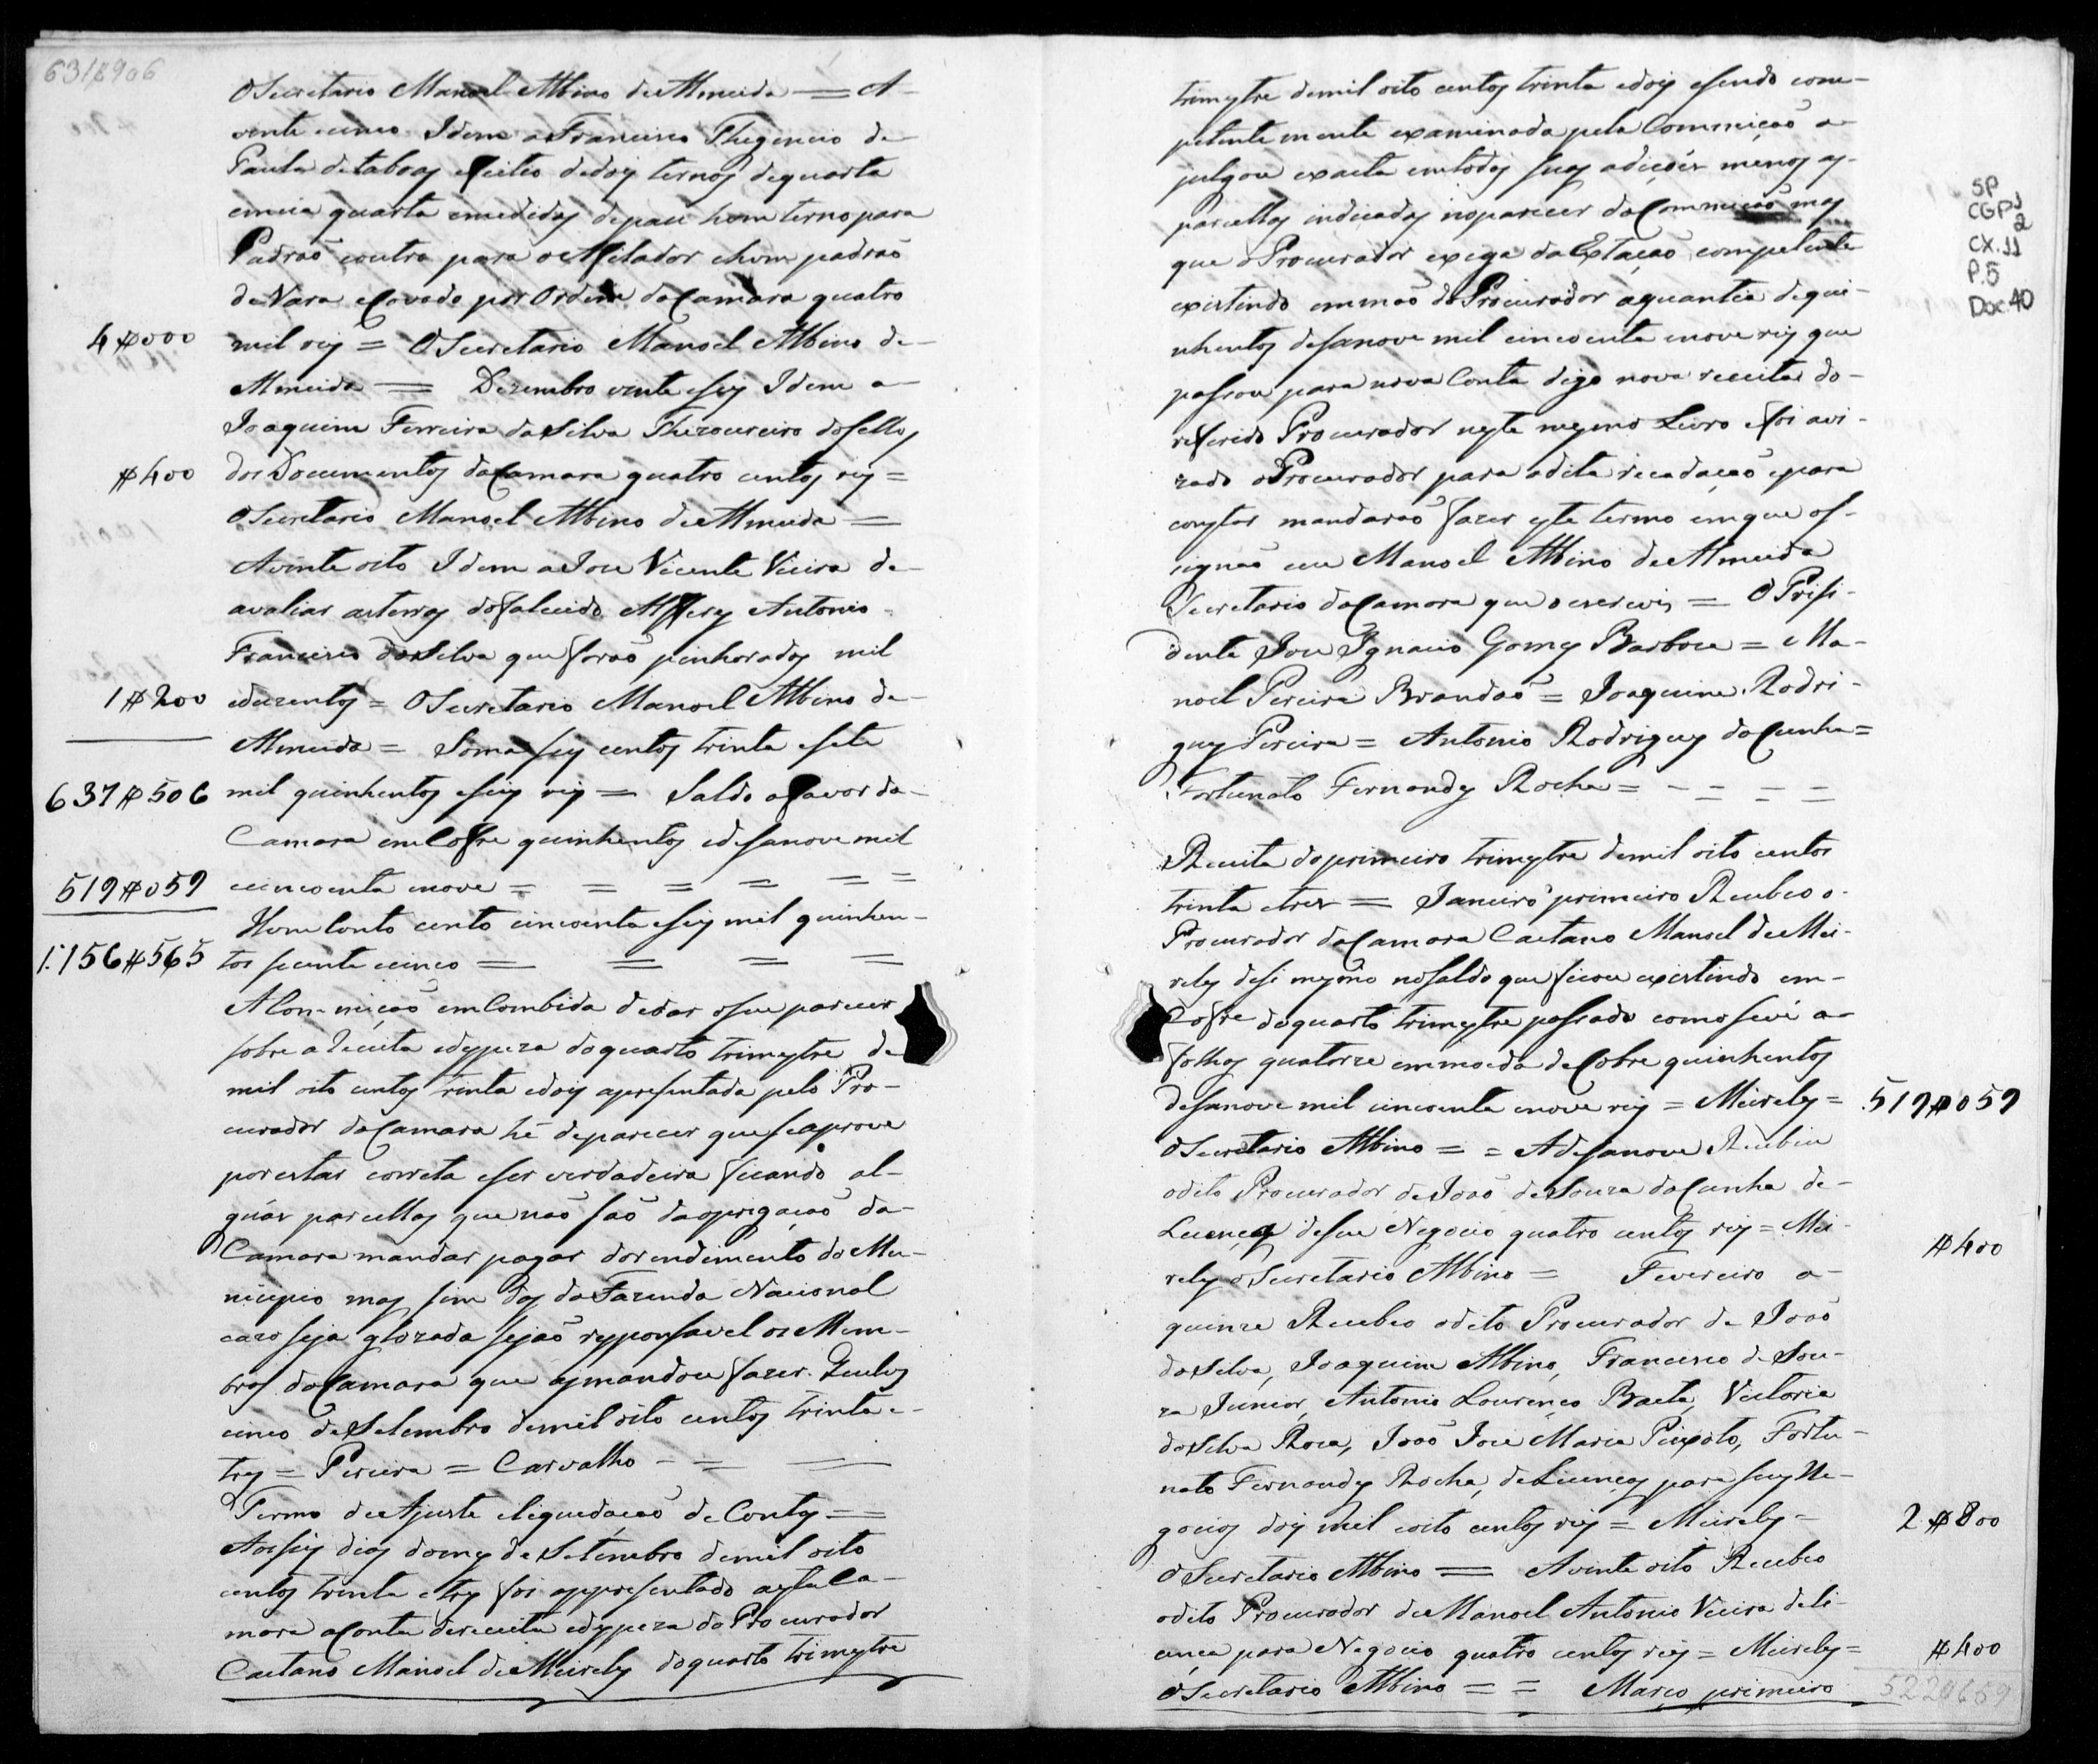 631$906
O Secretario Manoel Albino de Almeida = A
vente cinco Idem a Francisco Fhegencio de
Paula de taboas e feitio de dois ternos de quarta
e meia quarta e medidas de pau hum terno para
Padraõ e outro para o Afilador e hum padraõ
de Vara e Covado por Ordem da Camara quatro
4$000 mil reis = O Secretario Manoel Albino de
Almeida = Dezembro vinte e seis Idem a
Joaquim Ferreira da Silva Thezoureiro do Sello
$400 dos Documentos da Camara quatro centos reis =
O Secretario Manoel Albino de Almeida =
A vinte oito Idem a Joze Vicente Vieira de
avaliar as terras do falecido Alferes Antonio
Francisco da Silva que foraõ penhorados mil
1$200 e duzentos = O Secretario Manoel Albino de
Almeida = Soma seis centos trinta e sete
637$506 mil quinhentos e seis reis = Saldo a favor da
Camara em Cofre quinhentos e desanove mil
519$059 e cincoenta e nove = = = = = =
Hum Conto cento cincoenta e seis mil quinhen-
1:156$565 tos secenta e cinco = = = =
A Commiçaõ emcombida de dar o seu parecer
sobre a receita e dispeza do quarto trimestre de
mil oito centos trinta e dois apresentada pelo Pro-
curador da Camara hé de parecer que se aprove
por estar correta e ser verdadeira ficando al-
guãs parcellas que naõ saõ da oprigaçaõ da
Camara mandar pagar do rendimento do Mu-
nicipio mas sim das da Fazenda Nacional
cazo seja glozada sejaõ responsavel os Mem-
bros da Camara que as mandou fazer. Queluz
cinco de Setembro de mil oito centos trinta e
tres = Pereira = Carvalho - = =
Termo de Ajuste e liquedaçaõ de Contas = =
Aos seis dias do mes de Setembro de mil oito
centos trinta e tres foi appresentado a esta Ca-
mara a Conta de receita e dispeza do Procurador
Caetano Manoel de Meirelles do quarto trimestre
trimestre de mil oito centos trinta e dois e sendo com-
petente mente examinada pela Commiçaõ a
julgou exacta em todas suas adiçoẽs menos as
parcellas indicadas no parecer da Commiçaõ mas
que o Procurador exiga da Estaçaõ competente
existindo em maõ do Procurador a quantia de qui-
nhentos desanove mil cincoenta e nove reis que
passou para nova Conta digo nova receita do
referido Procurador neste mesmo Livro e foi avi-
zado o Procurador para a dita recadaçaõ e para
constar mandaraõ fazer este termo em que as-
signaõ eu Manoel Albino de Almeida
Secretario da Camara que o escrevi = O Prisi-
dente Joze Ignacio Gomes Barboza = Ma-
noel Pereira Brandaõ = Joaquim Rodri-
gues Pereira = Antonio Rodrigues da Cunha =
Fortunato Fernandes Rocha = - = = =
Receita do primeiro trimestre de mil oito centos
trinta e tres = Janeiro primeiro Recebeo o
Procurador da Camara Caetano Manoel de Mei-
reles de si mesmo no saldo que ficou existindo em
Cofre do quarto trimestre passado como se vê a
folhas quatorze em moeda de Cobre quinhentos
desanove mil cincoenta e nove reis = Meireles = 519$059
O Secretario Albino = = A desanove Recebeu
o dito Procurador de Joaõ de Souza da Cunha de
Licença de seu Negocio quatro centos reis = Mei- $400
reles o Secretario Albino = Fevereiro a
quinze Recebeo o dito Procurador de Joaõ
da Silva, Joaquim Albino, Francisco de Sou-
za Junior, Antonio Lourenço Baeta, Victoria
da Silva Roza, Joaõ Joze Maria Peixoto, Fortu-
nato Fernandes Rocha, de Licenças para seus Ne-
gocios dois mil e oito centos reis = Meireles = 2$800
O Secretario Albino = A vinte oito Recebeo
o dito Procurador de Manoel Antonio Vieira de li-
cença para Negocio quatro centos reis = Meireles = $400
O Secretario Albino = = Março primeiro 522$659
SP
CGP1
2
CX.11
P.5
Doc.40